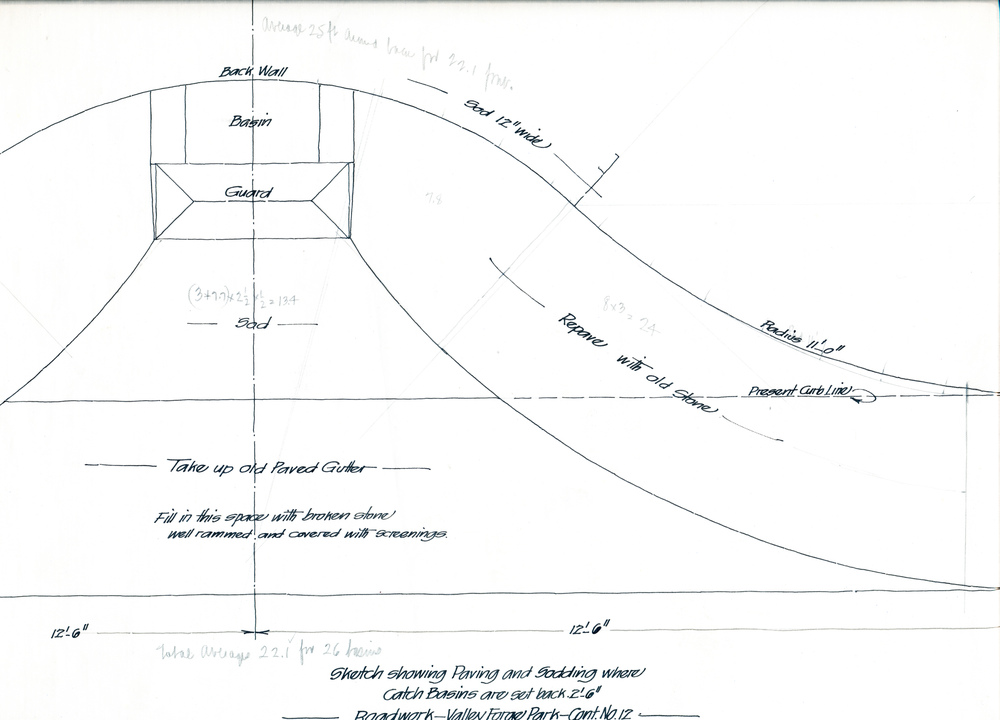 Average 25 ft
for 22.1
Back Wall
Sod 12" wide
Basin
Guard
7.8
(3+7.7)x2½x½=13.4
8x3=24
Sod
Repave with old Stone
Radius 11'-0"
Present Curb Line
Take up old Paved Gutter
Fill in this space with broken stone
well rammed and covered with screenings.
12'-6"
12'-6"
Total Average 22.1 for 26 basins
Sketch showing Paving and Sodding where
Catch Basins are set back 2'-6"
Roadwork—Valley Forge Park—Cont. No. 12